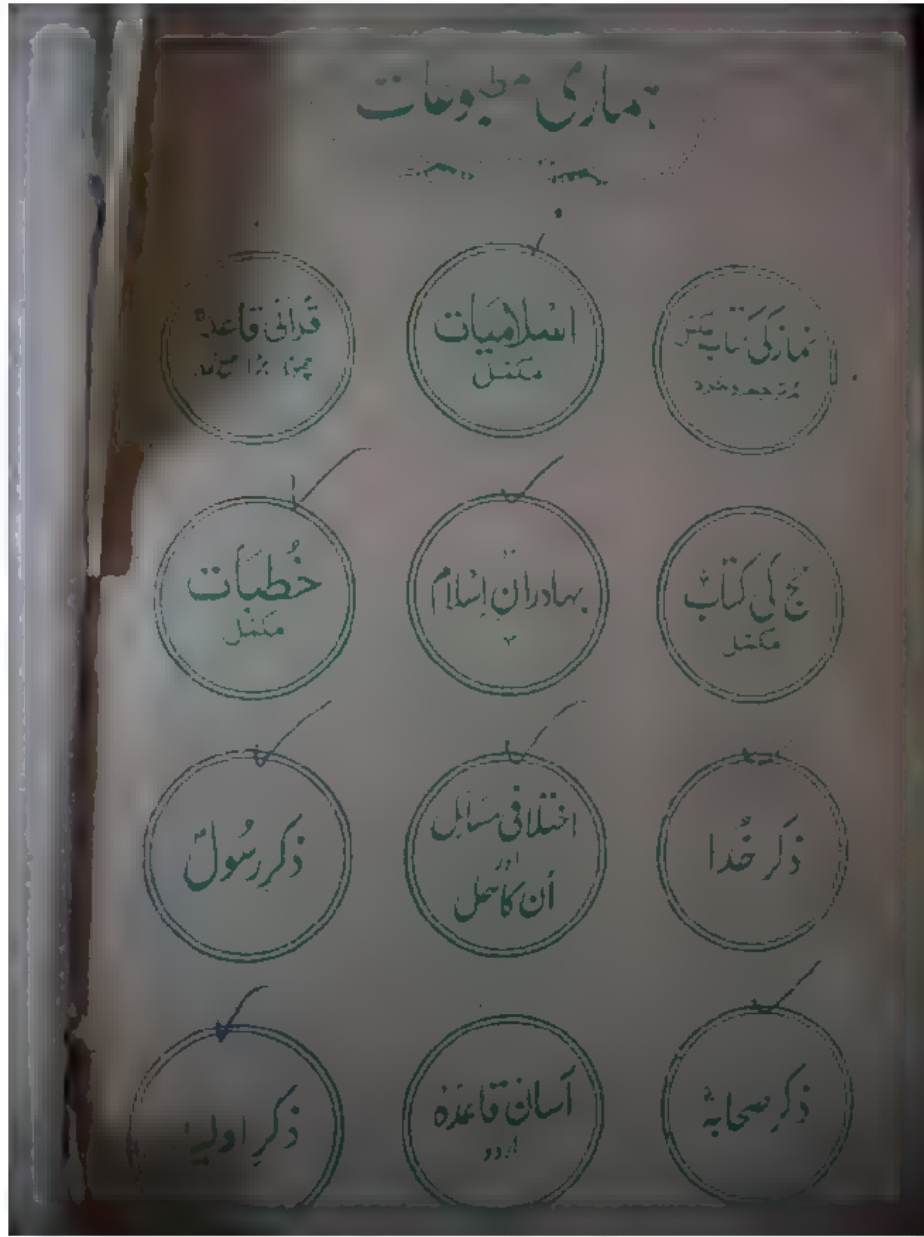 ہماری مطبوعات
نماز کی کتاب مکمل
اسلامیات
مکمل
قرآنی قاعدہ
چھوٹا بڑا
حج کی کتاب
مکمل
بہادرانِ اسلام
خُطبات
مکمل
ذکرِ خُدا
اختلافی مسائل
اور
اُن کا حل
ذکرِ رسولؐ
ذکرِ صحابہؓ
آسان قاعدہ
اردو
ذکرِ اولیاء